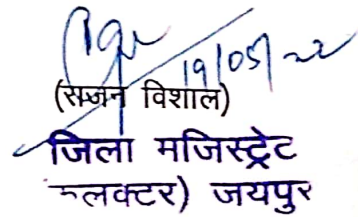 19/05/22
(सजन विशाल)
जिला मजिस्ट्रेट
लक्टर) जयपुर